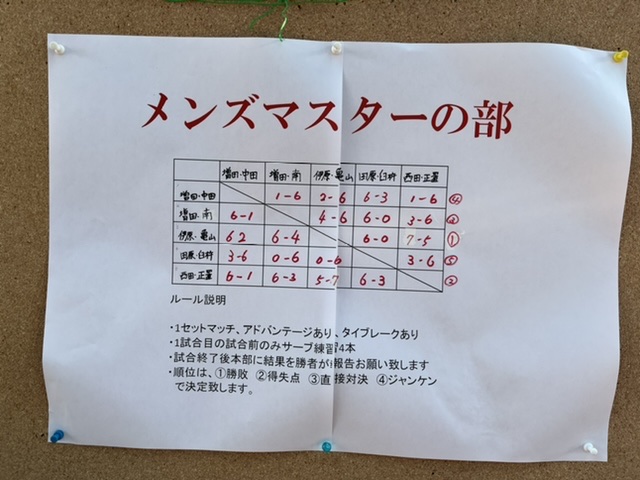 メンズマスターの部
増田・中田 増田・南 伊原・亀山 田原・臼杵 西田・正置
増田・中田 1-6 2-6 6-3 1-6 ④
増田・南 6-1 4-6 6-0 3-6
伊原・亀山 6 2 6-4 6-0 7-5 ①
田原・臼杵 3-6 0-6 0-6 3-6 ⑤
西田・正置 6-1 6-3 5-7 6-3 ②
ルール説明
・1セットマッチ、アドバンテージあり、タイブレークあり
・1試合目の試合前のみサーブ練習4本
・試合終了後本部に結果を勝者が報告お願い致します
・順位は、①勝敗 ②得失点 ③直接対決 ④ジャンケン
で決定致します。